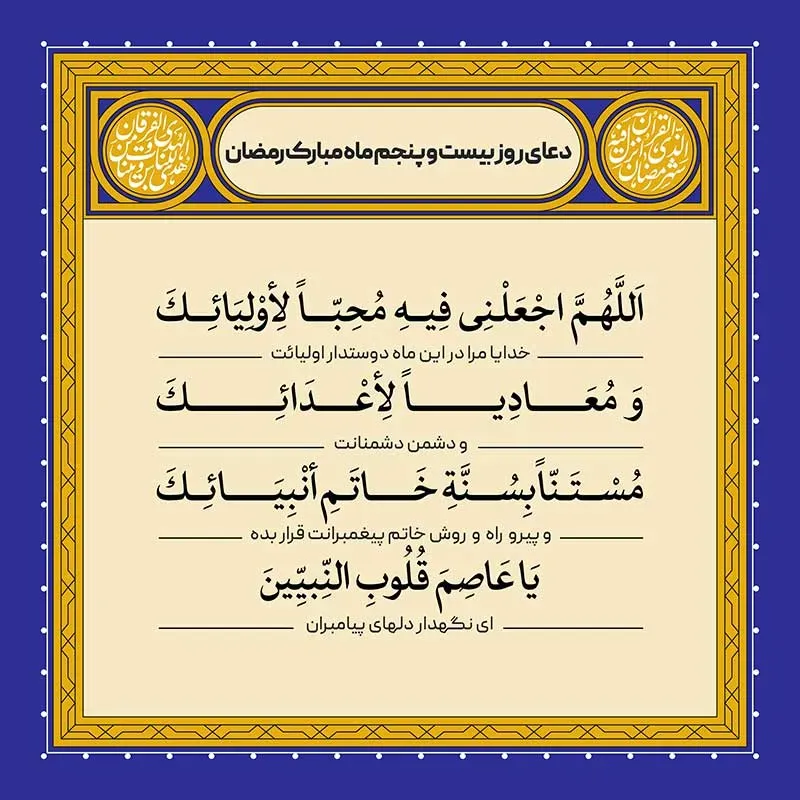 شهر رمضان الذی انزل فیه القرآن
دعای روز بیست و پنجم ماه مبارک رمضان
هدی للناس و بینات من الهدی و الفرقان
اَللَّهُمَّ اجْعَلْنِی فِیهِ مُحِبّاً لِأَوْلِیَائِكَ
خدایا مرا در این ماه دوستدار اولیائت
وَ مُعَادِیاً لِأَعْدَائِكَ
و دشمن دشمنانت
مُسْتَنّاً بِسُنَّةِ خَاتَمِ أَنْبِیَائِكَ
و پیرو راه و روش خاتم پیغمبرانت قرار بده
یَا عَاصِمَ قُلُوبِ النَّبِیِّینَ
ای نگهدار دلهای پیامبران